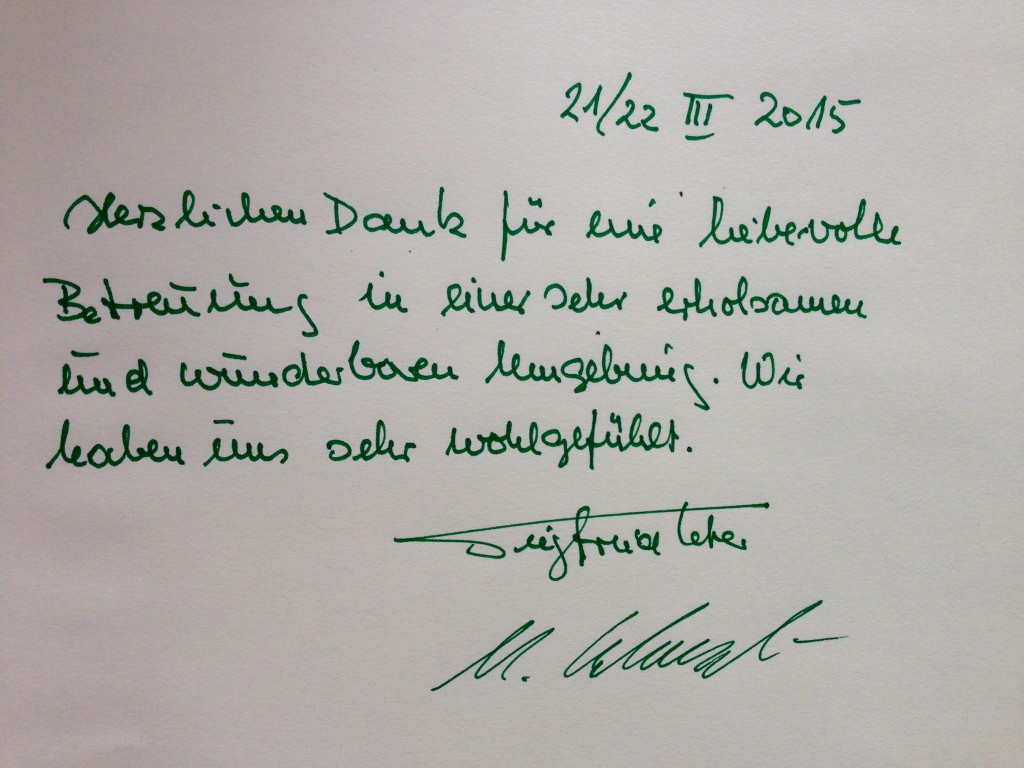 21/22 III 2015
Herzlichen Dank für eine liebevolle
Betreuung in einer sehr erholsamen
und wunderbaren Umgebung. Wir
haben uns sehr wohlgefühlt.
Siegfried
M.